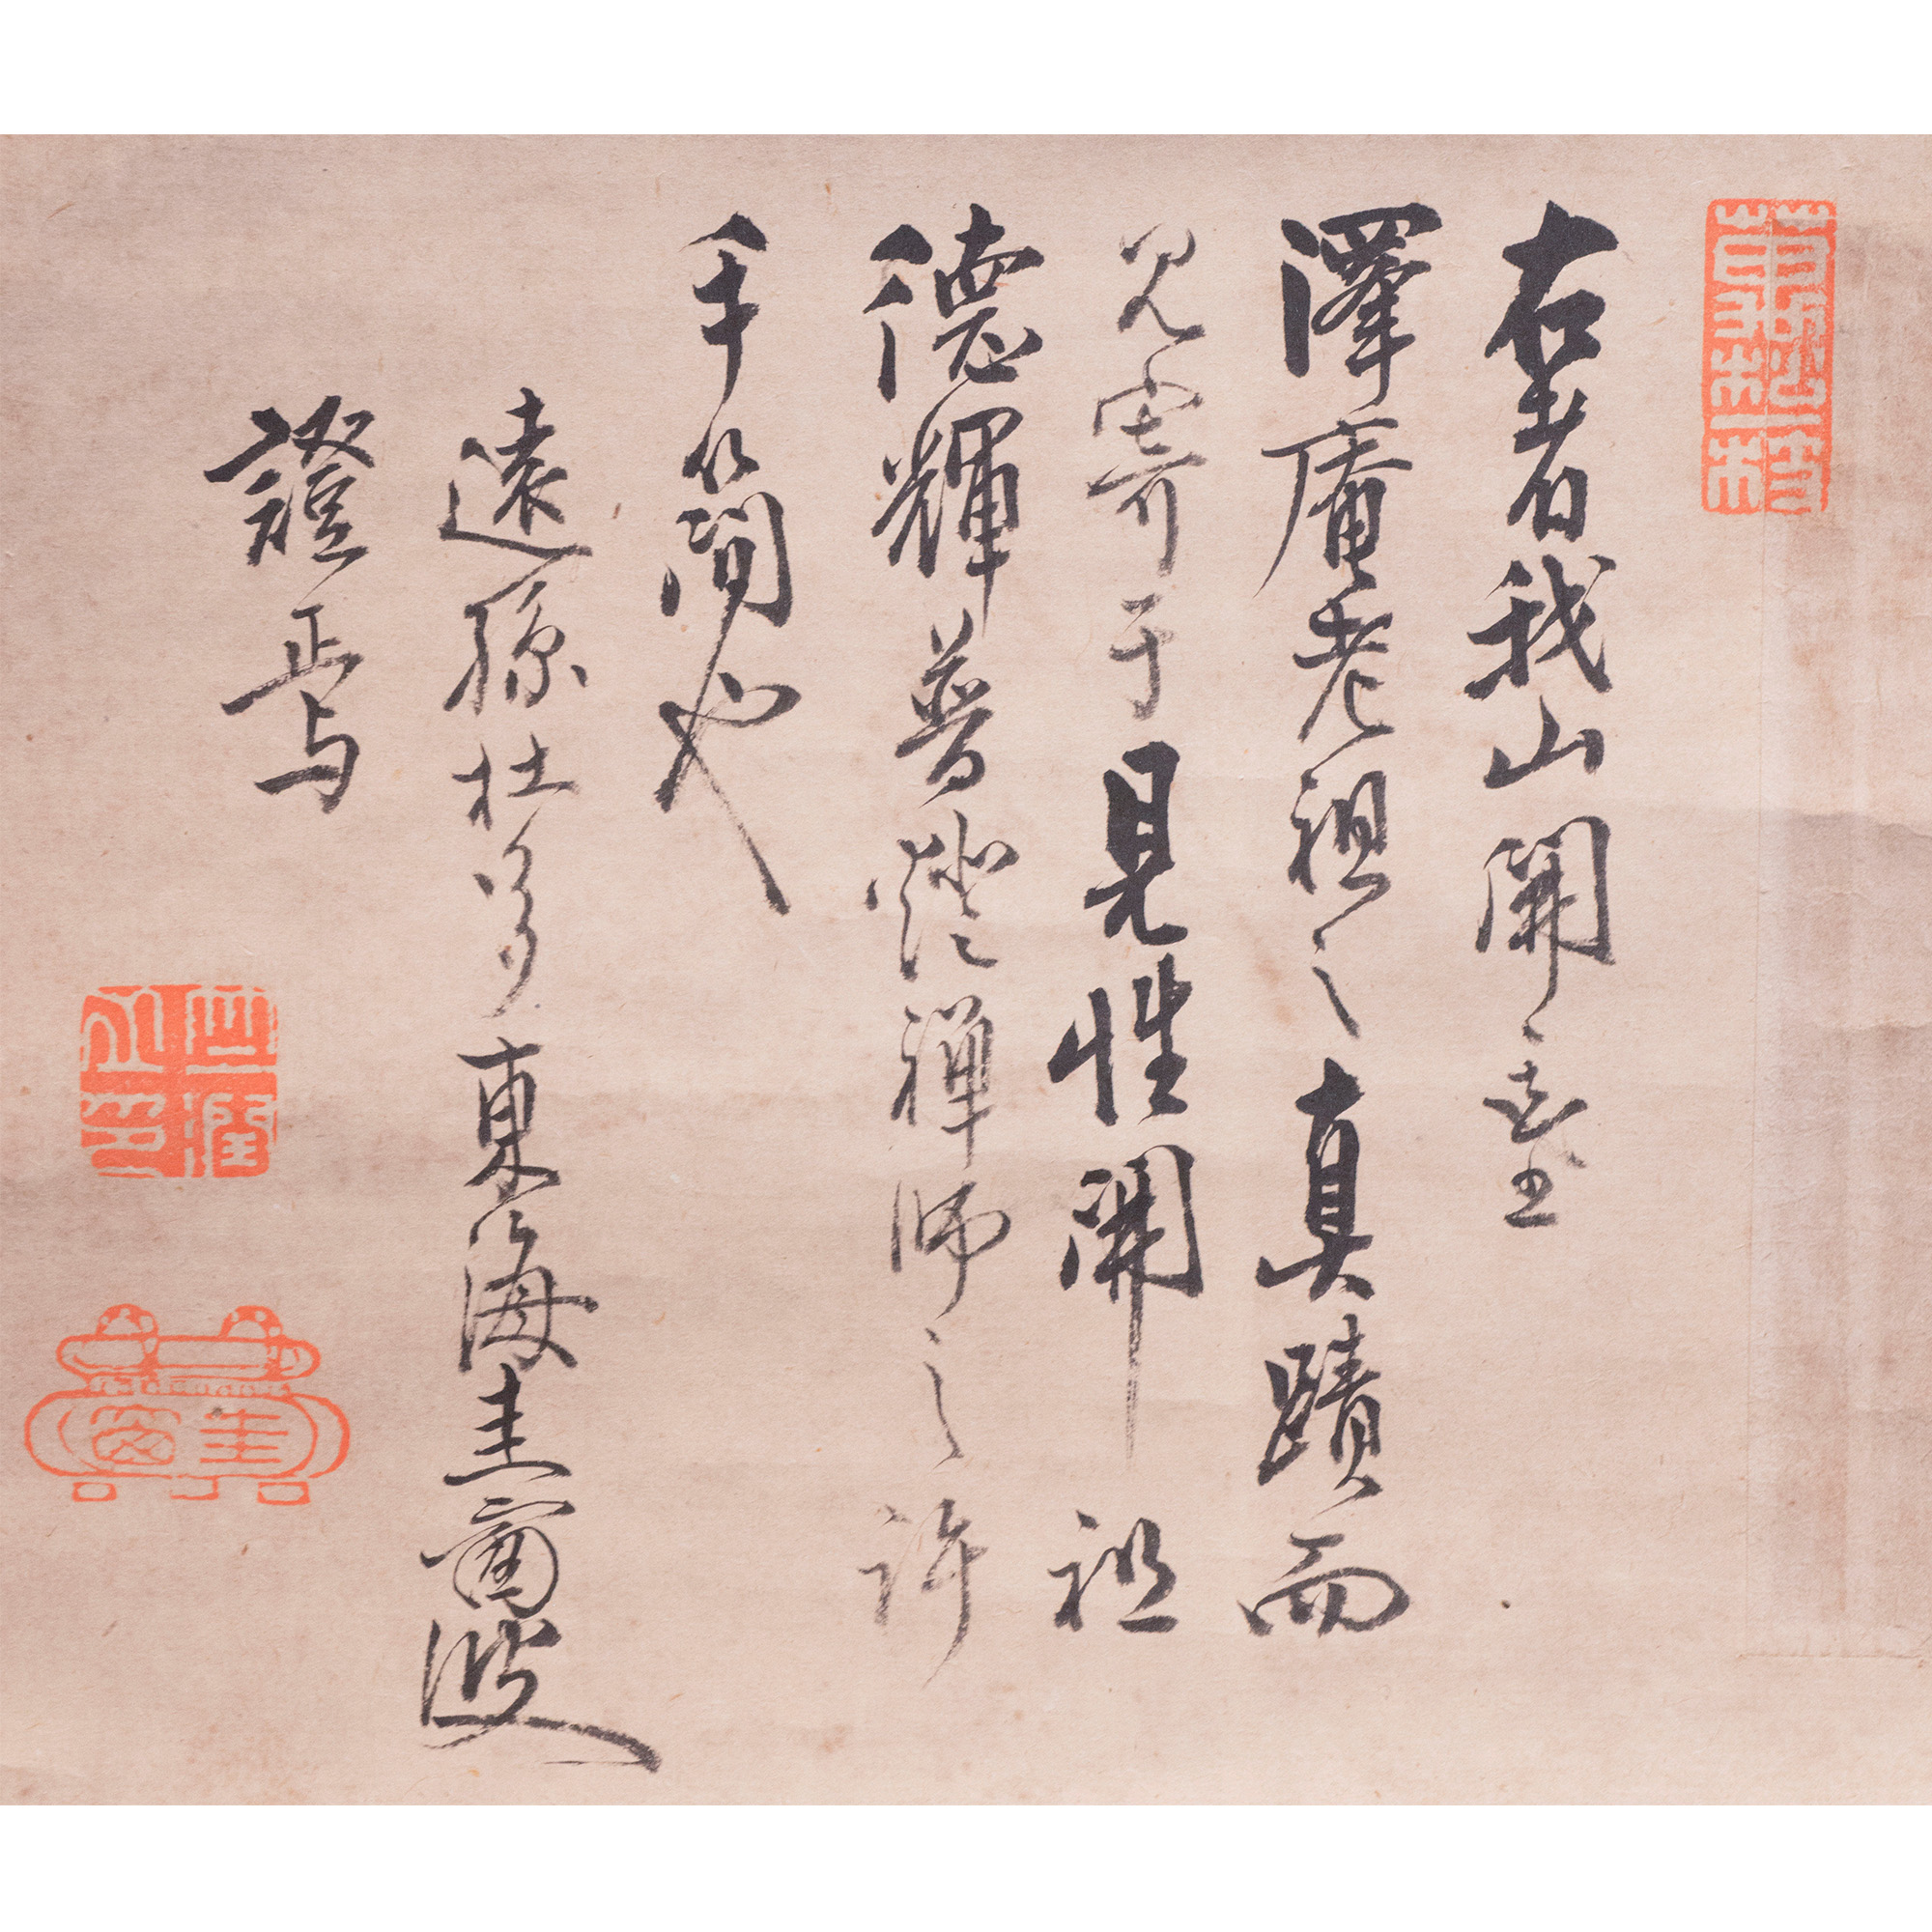 右者我山開臺
澤庵老祖之真蹟而
見寄于見性開祖
德輝普燈禪師之許
手簡也
遠孫杜多東海圭窗渡
證焉
圭窗